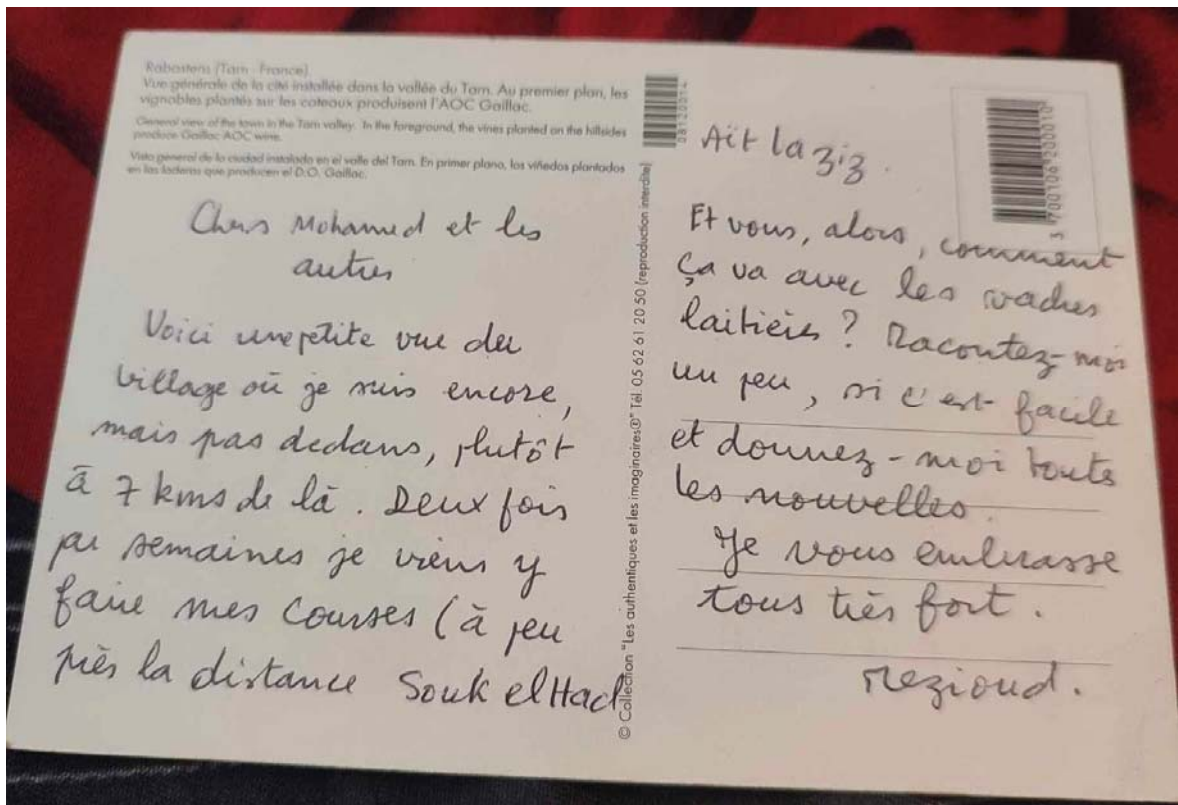 Rabastens (Tarn - France)
Vue générale de la cité installée dans la vallée du Tarn. Au premier plan, les
vignobles plantés sur les coteaux produisent l'AOC Gaillac.
General view of the town in the Tarn valley. In the foreground, the vines planted on the hillsides
produce Gaillac AOC wine.
Vista general de la ciudad instalada en el valle del Tarn. En primer plano, los viñedos plantados
en las laderas que producen el D.O. Gaillac.
Chers Mohamed et les
autres
Voici une petite vue du
village où je suis encore,
mais pas dedans, plutôt
à 7 kms de là. Deux fois
par semaines je viens y
faire mes courses (à peu
près la distance Souk el Had
© Collection "Les authentiques et les imaginaires®" Tél. 05 62 61 20 50 (reproduction interdite)
08120014
Aït laziz.
Et vous, alors, comment
ça va avec les vaches
laitières ? Racontez-moi
un peu, si c'est facile
et donnez-moi toute
les nouvelles.
Je vous embrasse
tous très fort.